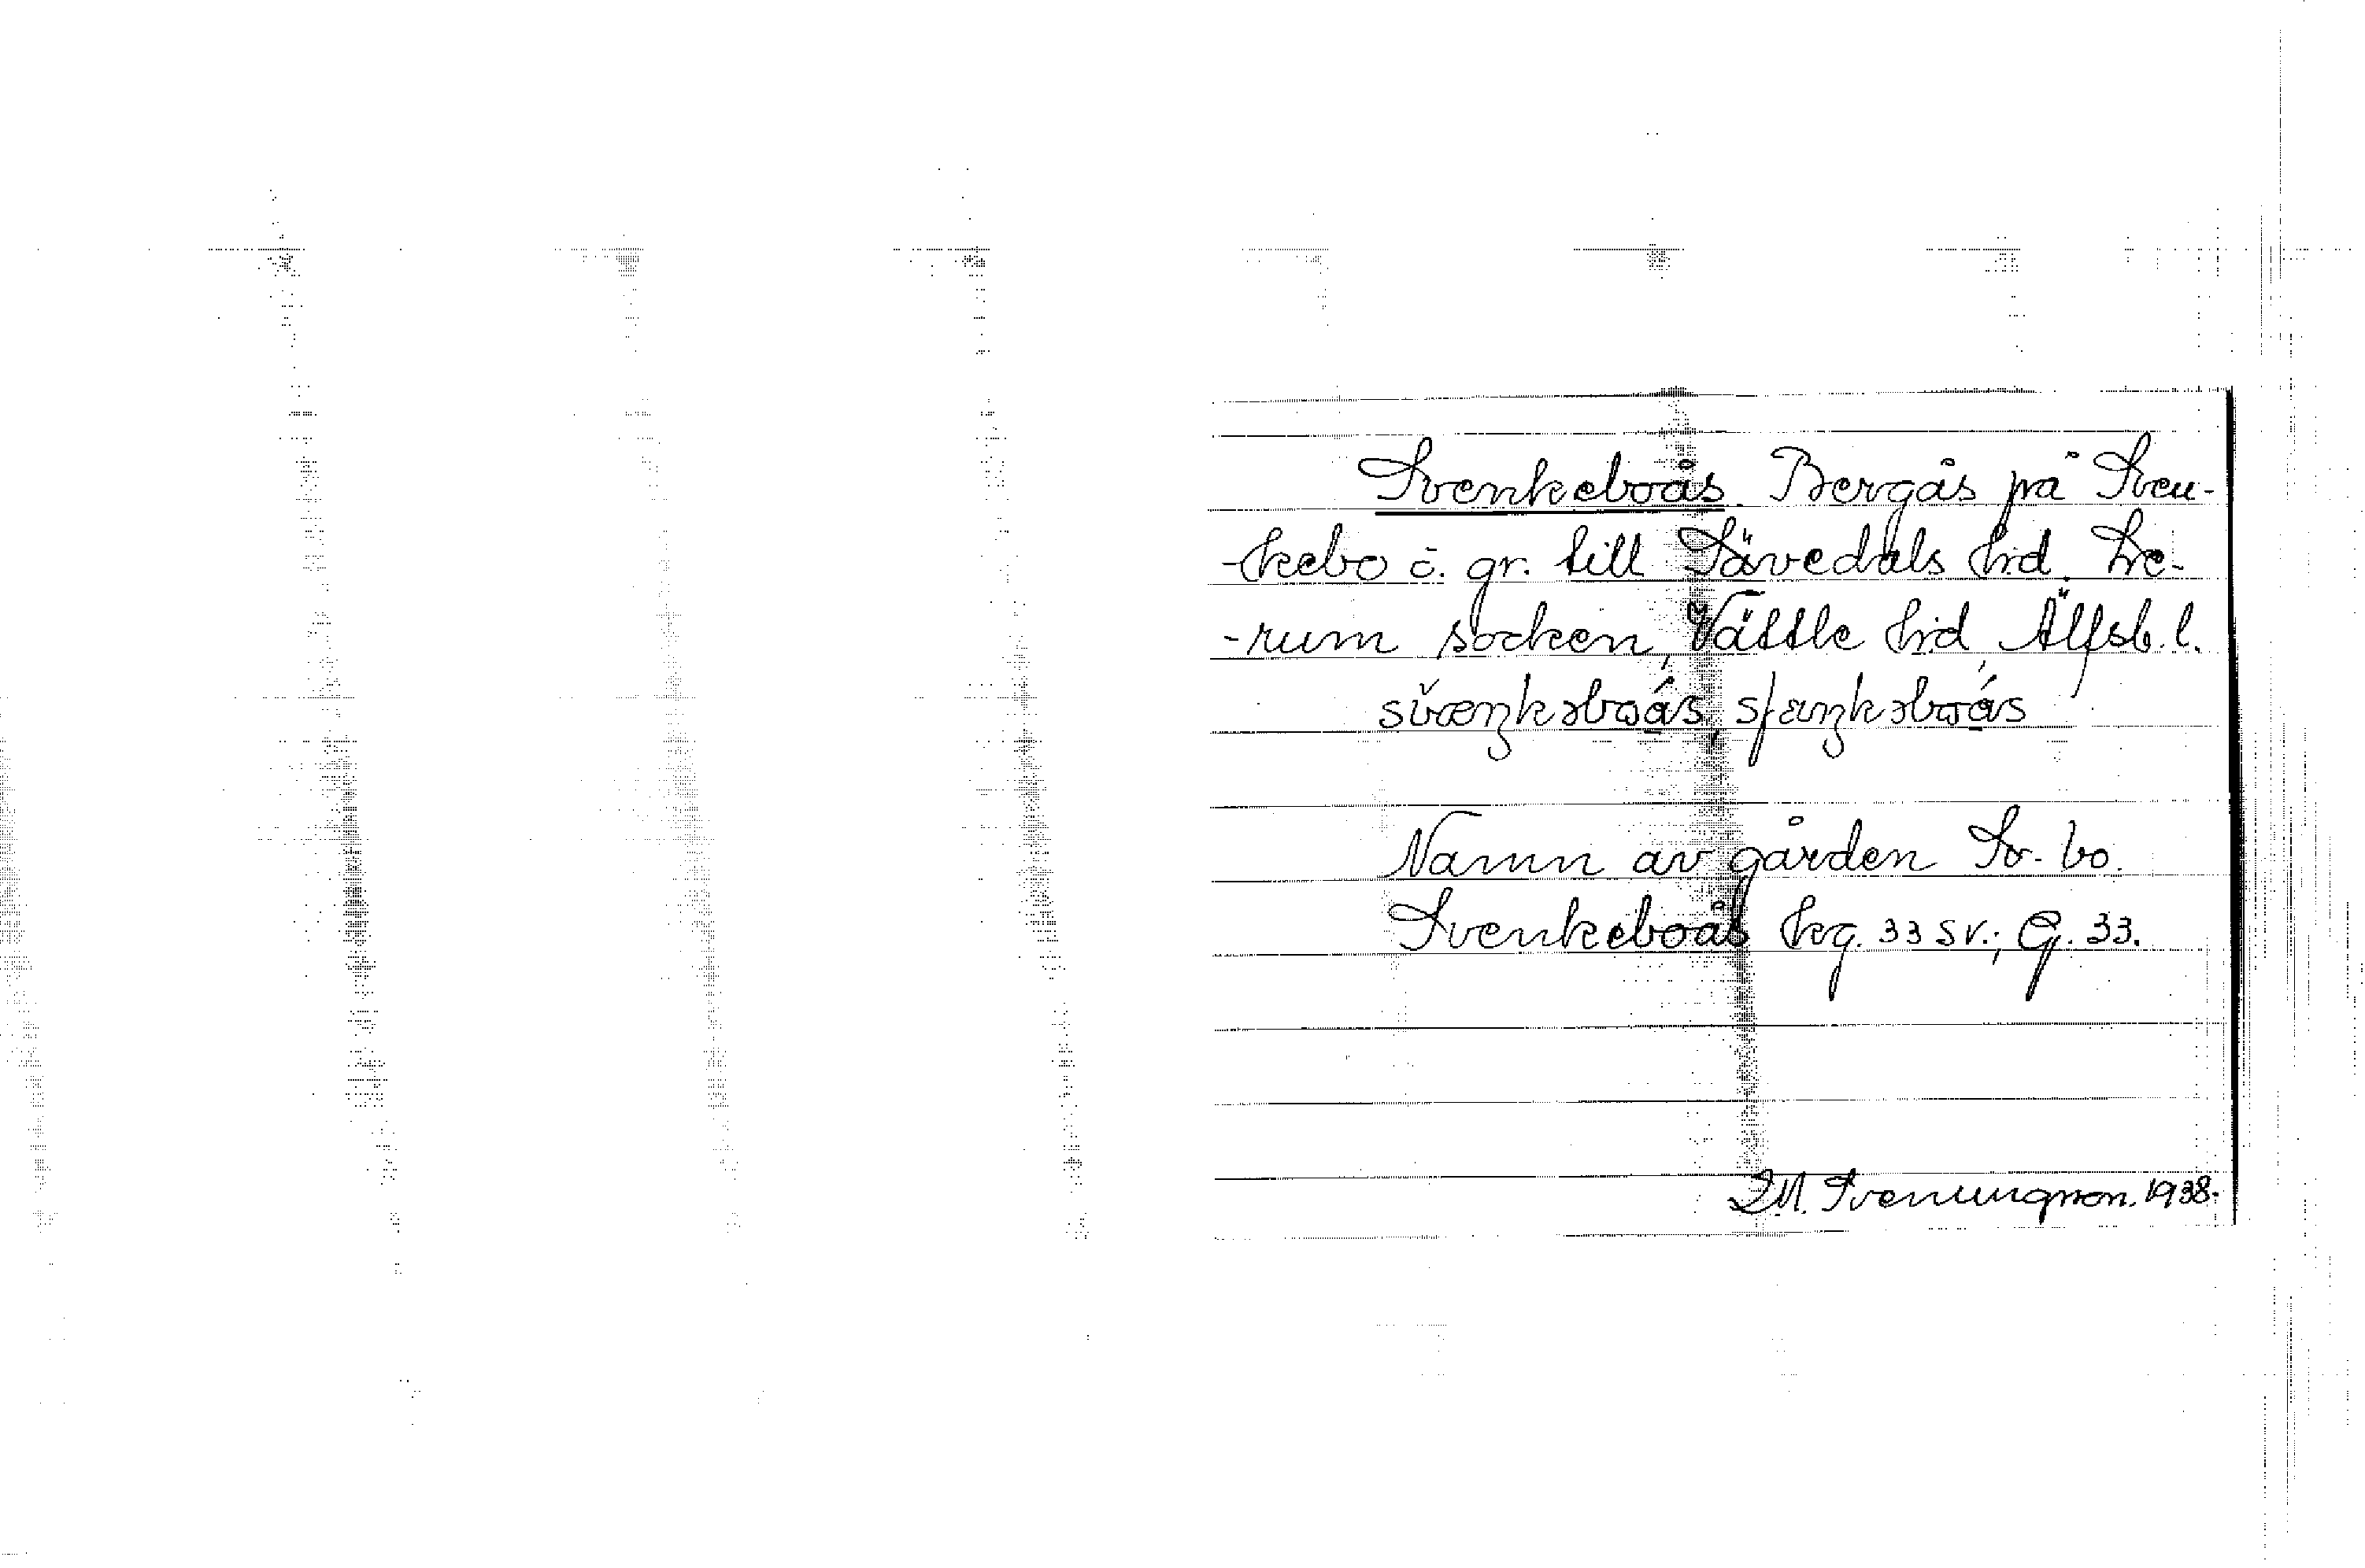 Svenkeboås. Bergås på Sven-
-kebo ö. gr. till Sävedals hd. Le-
-rum socken, Vättle hd, Älfsb. l.
Namn av gården Sv-bo.
Svenkeboås kg. 33 sv.; G. 33.
M. Svenungsson. 1938.